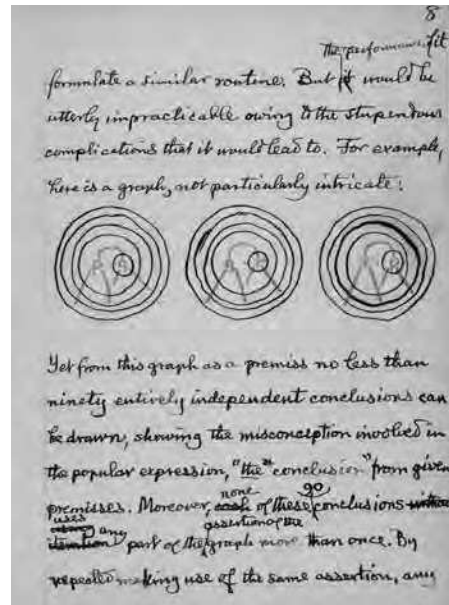 8
the performance of it
formulate a similar routine. But it would be
utterly impracticable owing to the stupendous
complications that it would lead to. For example,
here is a graph, not particularly intricate:
Yet from this graph as a premiss no less than
ninety entirely independent conclusions can
be drawn, showing the misconception involved in
the popular expression, "the conclusion" from given
none 90
premisses. Moreover, each of these conclusions
uses any assertion of the
part of the graph more than once. By
repeated making use of the same assertion, any